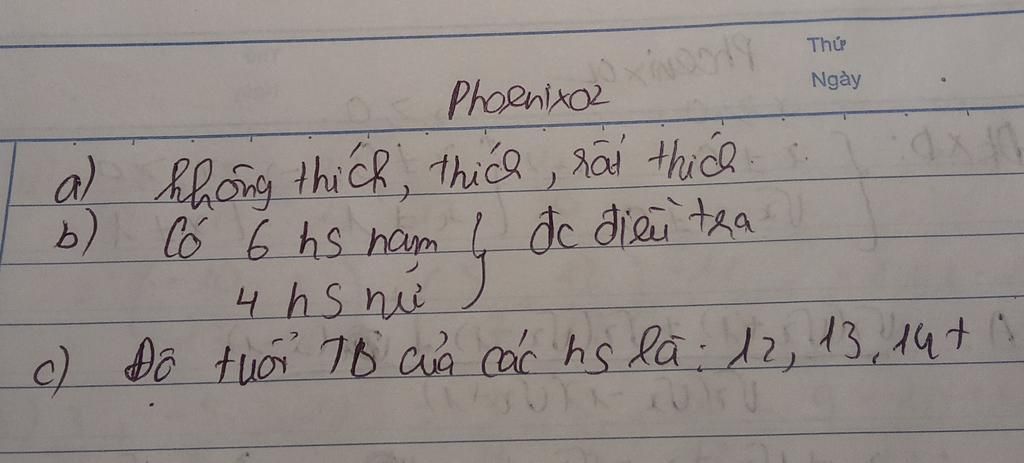 Thứ
Ngày
Phoenix02
a) không thích, thích, rất thích.
b) Có 6 hs nam } đc điều tra
4 hs nữ
c) Độ tuổi TB của các hs là: 12, 13, 14t